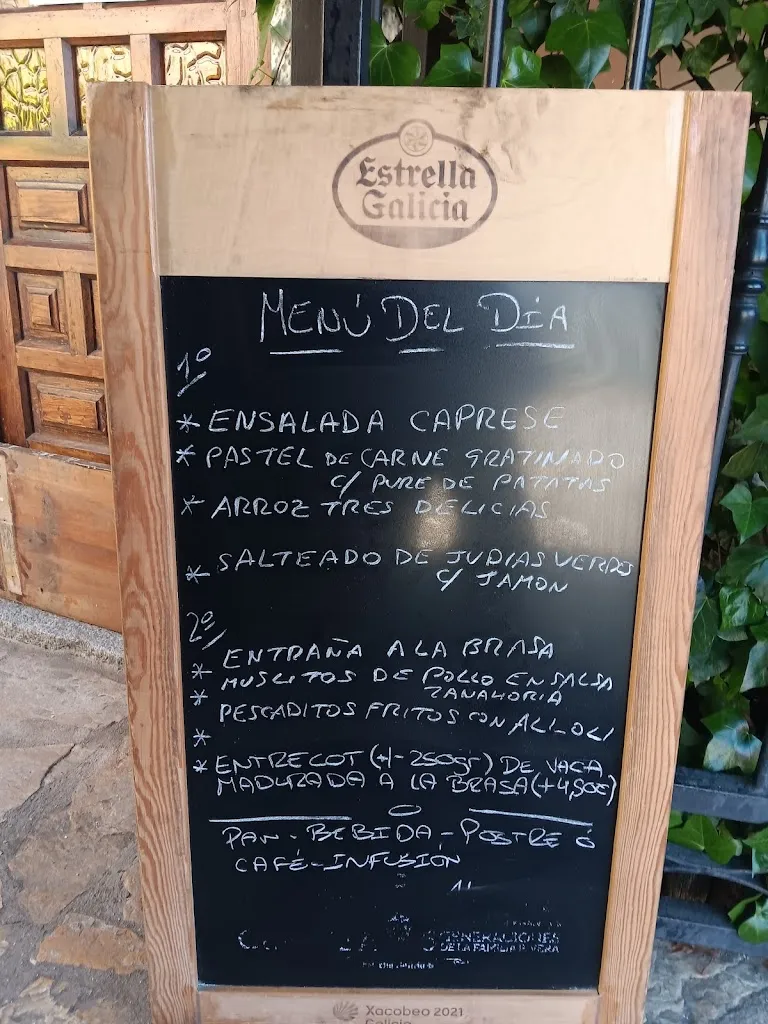 Estrella
Galicia
MENÚ DEL DÍA
1º
* ENSALADA CAPRESE
* PASTEL DE CARNE GRATINADO
C/ PURE DE PATATAS
* ARROZ TRES DELICIAS
* SALTEADO DE JUDIAS VERDES
C/ JAMON
2º
* ENTRAÑA A LA BRASA
* MUSLITOS DE POLLO EN SALSA
ZANAHORIA
* PESCADITOS FRITOS CON ALLOLI
* ENTRECOT (+/- 250gr) DE VACA
MADURADA A LA BRASA (+4,90€)
PAN - BEBIDA - POSTRE Ó
CAFÉ - INFUSIÓN
GENERACIONES
DE LA FAMILIA RIVERA
Xacobeo 2021
Galicia